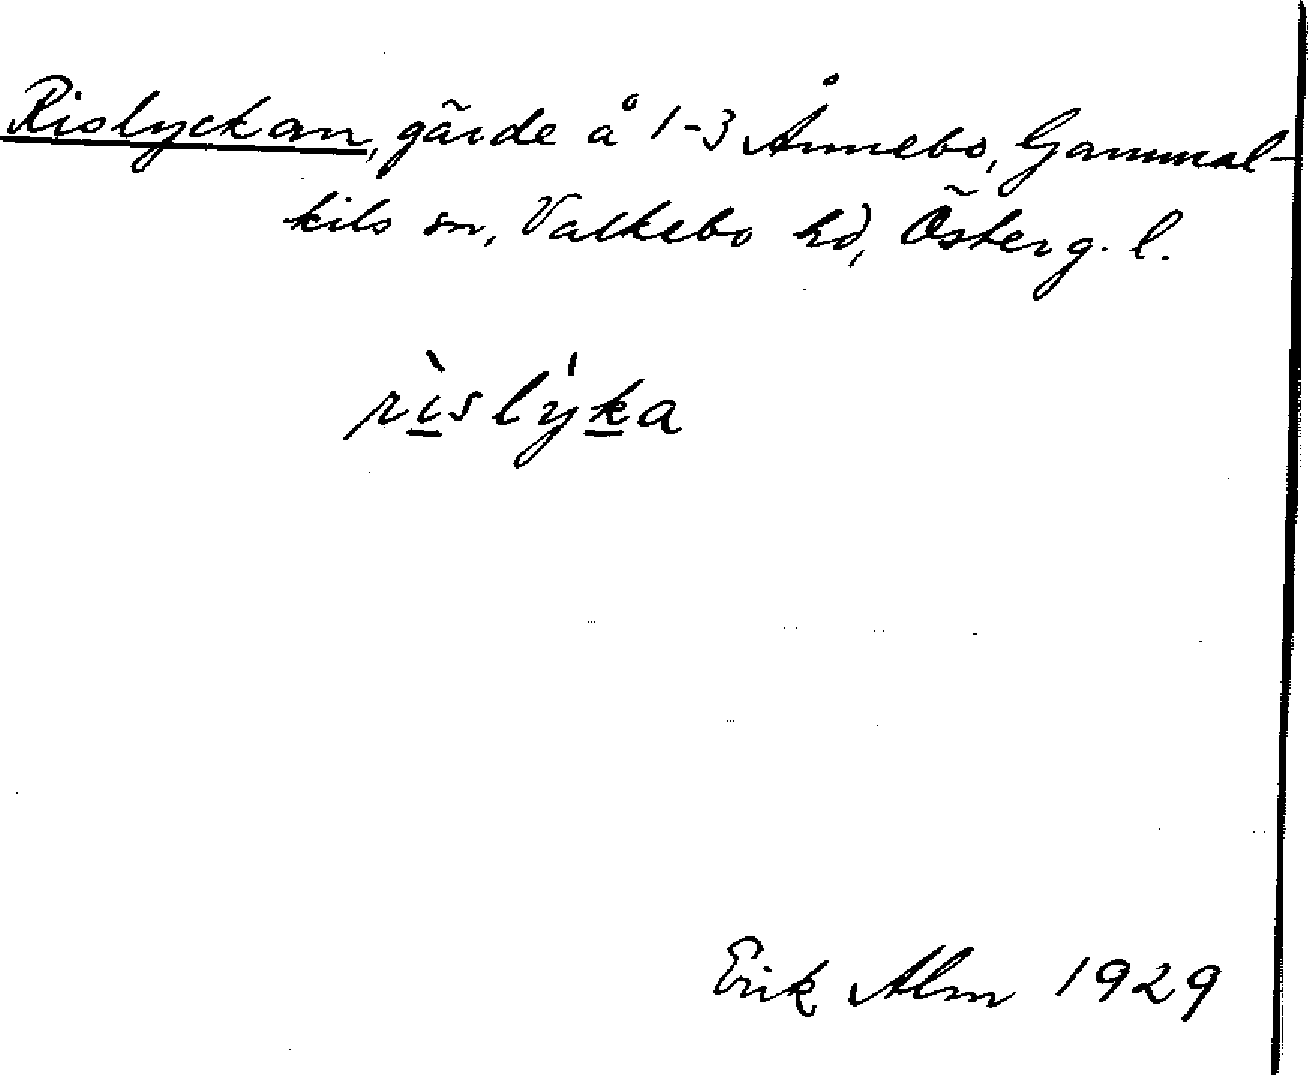 Rislyckan, gärde å 1-3 Ånnebo, Gammal-
kils sn, Valkebo hd, Österg. l.
rìslýka
Erik Alm 1929